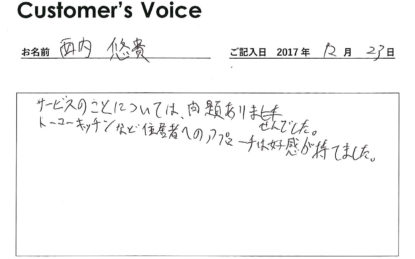 Customer's Voice
お名前 西内 悠貴 ご記入日 2017年 12月 23日
サービスのことについては、問題ありませんでした。
トーコーキッチンなど住居者へのアプローチは好感が持てました。